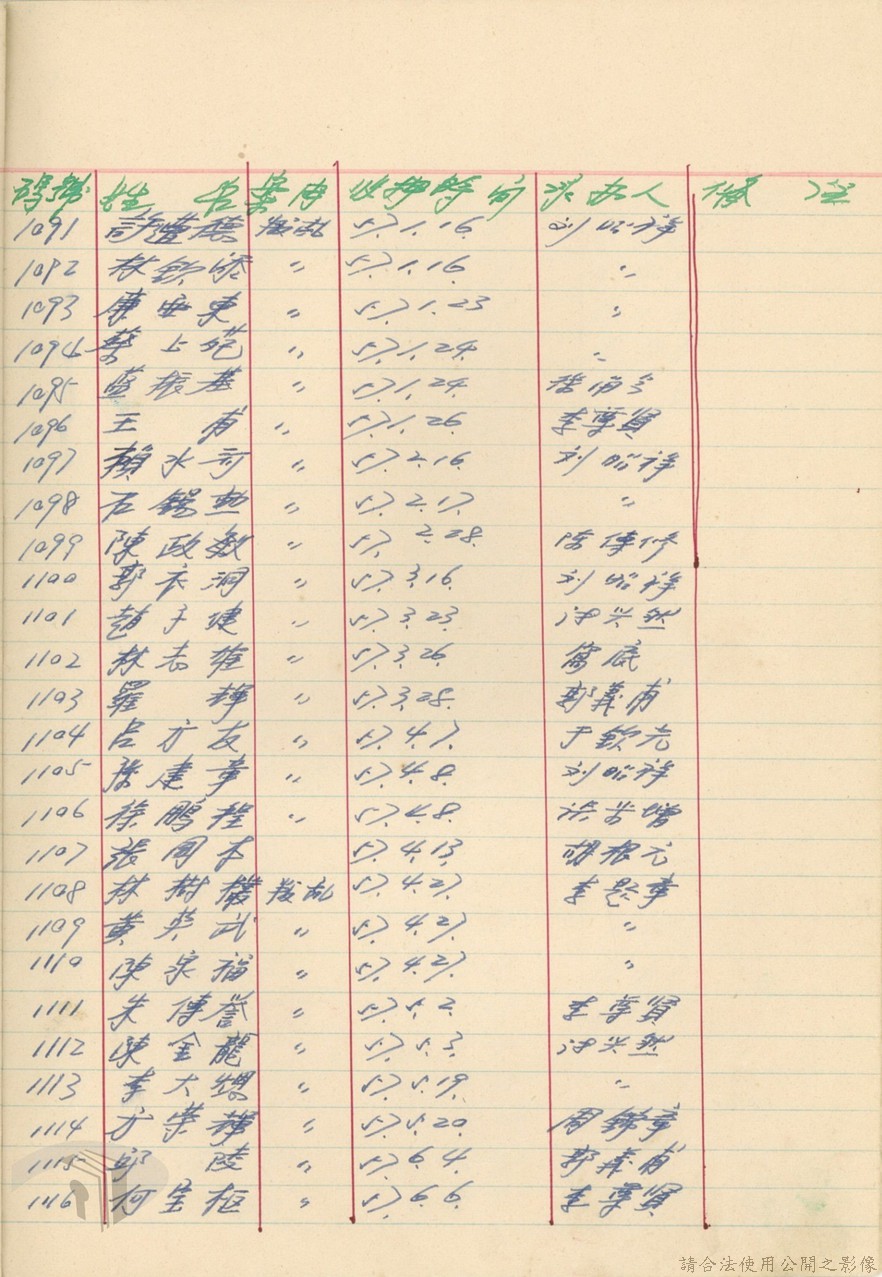 號 姓 名 案 由 收押時 承办人 備 註
1091 許 德 叛乱 57.1.16. 刘昭祥
1092 林欽 〃 57.1.16. 〃
1093 康 東 〃 57.1.23 〃
1094 蔡 〃 57.1.24. 〃
1095 藍振基 〃 57.1.24.
1096 王 甫 〃 57.1.26. 李尊賢
1097 賴水 〃 57.2.16. 刘昭祥
1098 石錫勲 〃 57.2.17. 〃
1099 陳政 〃 57.2.28. 陈傳修
1100 郭衣洞 〃 57.3.16. 刘昭祥
1101 趙子 〃 57.3.23. 然
1102 林志雄 〃 57.3.26. 底
1103 羅 輝 〃 57.3.28. 郭義甫
1104 呂方友 〃 57.4.7. 于欽
1105 建章 〃 57.4.8. 刘昭祥
1106 徐鵬程 〃 57.4.8.
1107 張周 〃 57.4.13. 胡根
1108 林樹 叛乱 57.4.27. 李
1109 黃英武 〃 57.4.27. 〃
1110 陳泉福 〃 57.4.27. 〃
1111 朱傳誉 〃 57.5.2. 李尊賢
1112 陳金龍 〃 57.5.3. 然
1113 李大 〃 57.5.19. 〃
1114 方榮輝 〃 57.5.20. 周錦章
1115 邱 陵 〃 57.6.4. 郭義甫
1116 柯 枢 〃 57.6.6. 李尊賢
請合法使用公開之影像